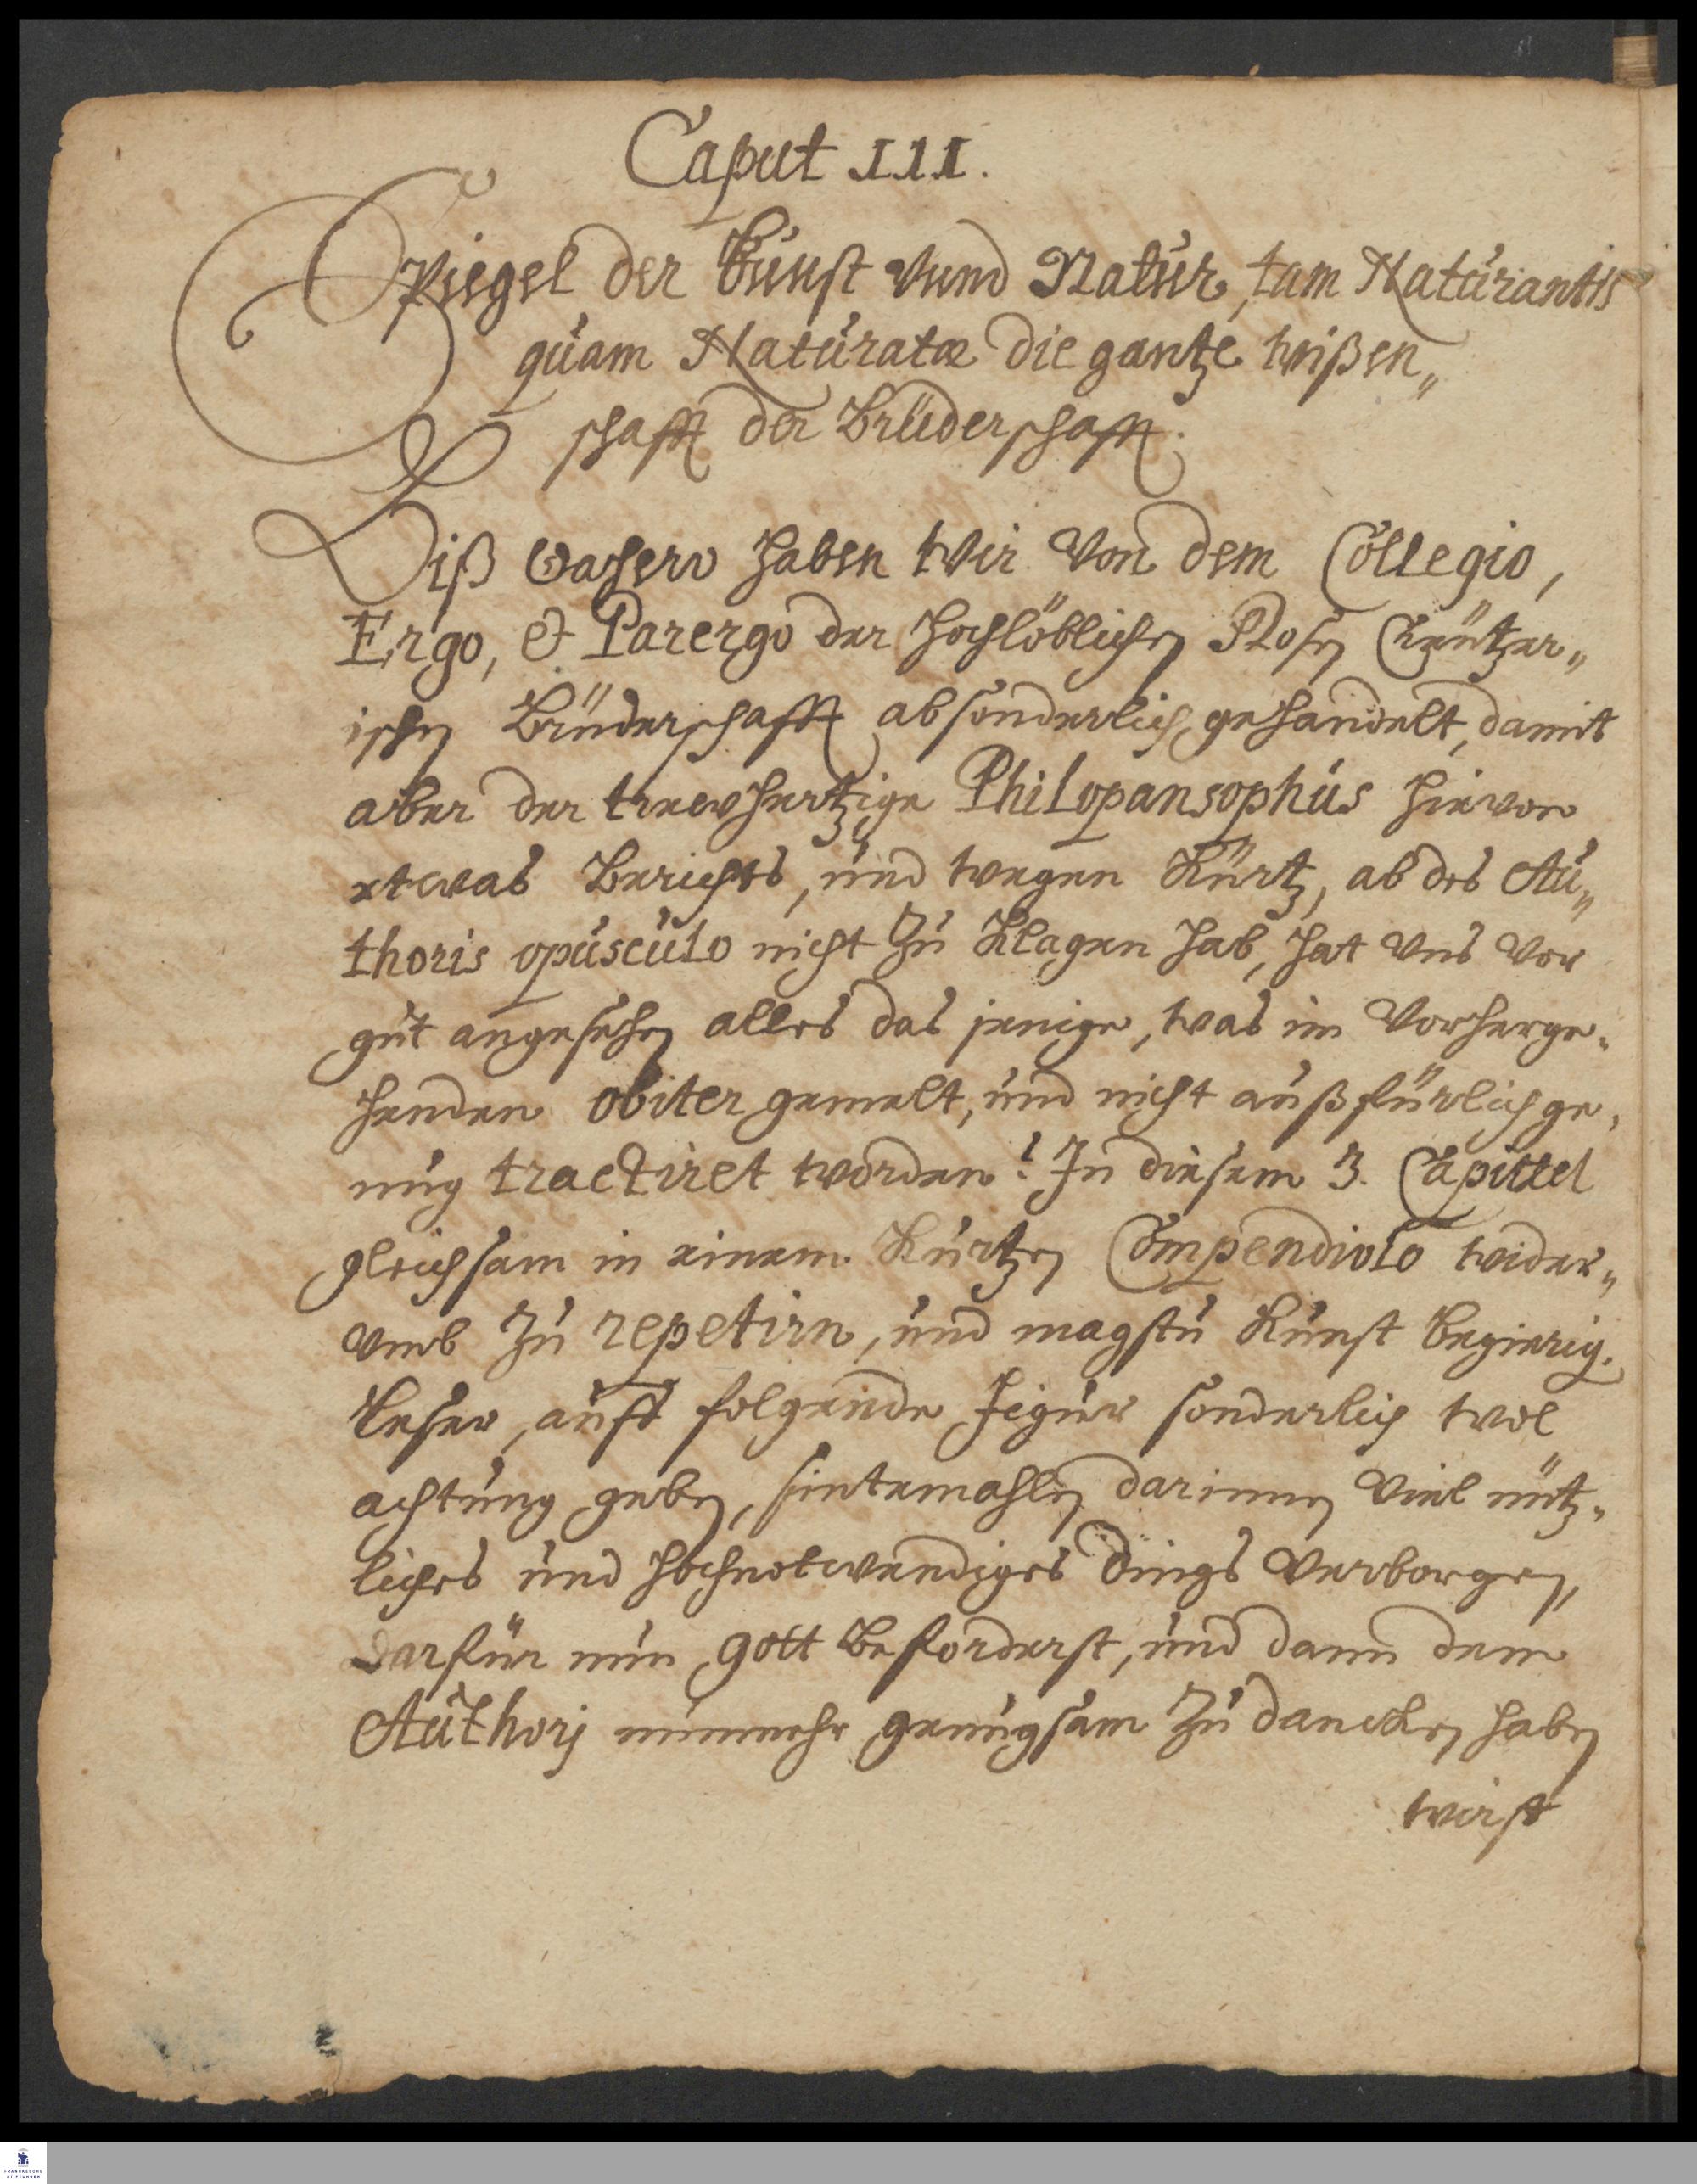 Caput III.
Spiegel der Kunst vnnd Natur, tam Naturantis
quam Naturatæ die gantze wißen„
schafft der Brüderschafft.
Biß Dahero haben wir von dem Collegio,
Ergo, & Parergo der hochlöblichen Rosen Creützer„
ischen Brüderschafft absonderlich gehandelt, damit
aber der trewhertzige Philopansophus hievon
etwas Berichts, und wegen Kürtz, ab des Au„
thoris opusculo nicht zu Klagen hab, hat vns vor
gut angesehen alles das jenige, was im Vorherge„
henden obiter gemelt, und nicht außfürlich ge„
nug tractiret worden! In diesem 3. Capittel
gleichsam in einem Kurtzen Compendiolo wider„
vmb zu repetirn, und magstu Kunst begierig.
Leser, auff folgende Figur sonderlich wol
achtung geben, sintemahlen darinnen viel nütz„
liches und hochnotwendiges Dings verborgen,
darfür nun Gott Beforderst, und dann dem
Authorj nunmehr genugsam zu dancken haben
wirst
FRANCKESCHE
STIFTUNGEN